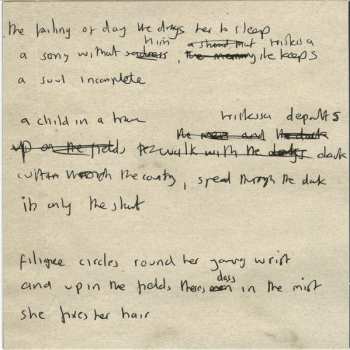 the failing of day the drags her to sleep
him a shroud that trilissa
a song without sadness, the memory he keeps
a soul incomplete
a child in a trance trilissa departs
the man and the dark
up on the fields to walk with the dogs dark
curtain through the country, speed through the dark
its only the start
filigree circles round her young wrist
and up in the fields theres dogs in the mist
she fixes her hair